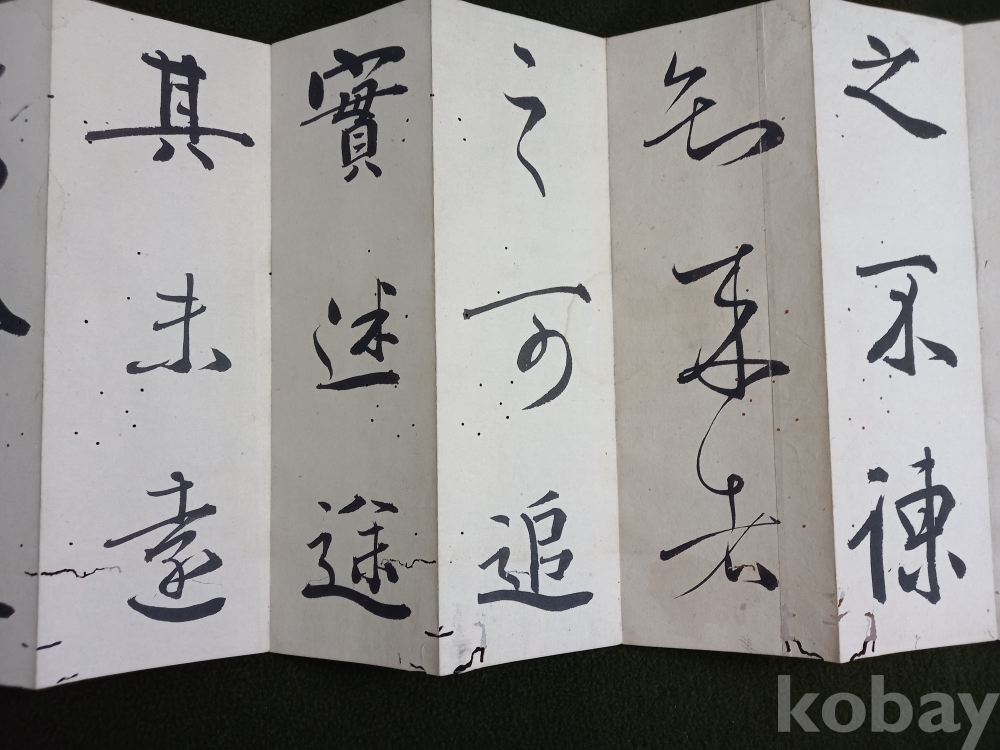 之不諫
知来者
之可追
實迷途
其未遠
kobay